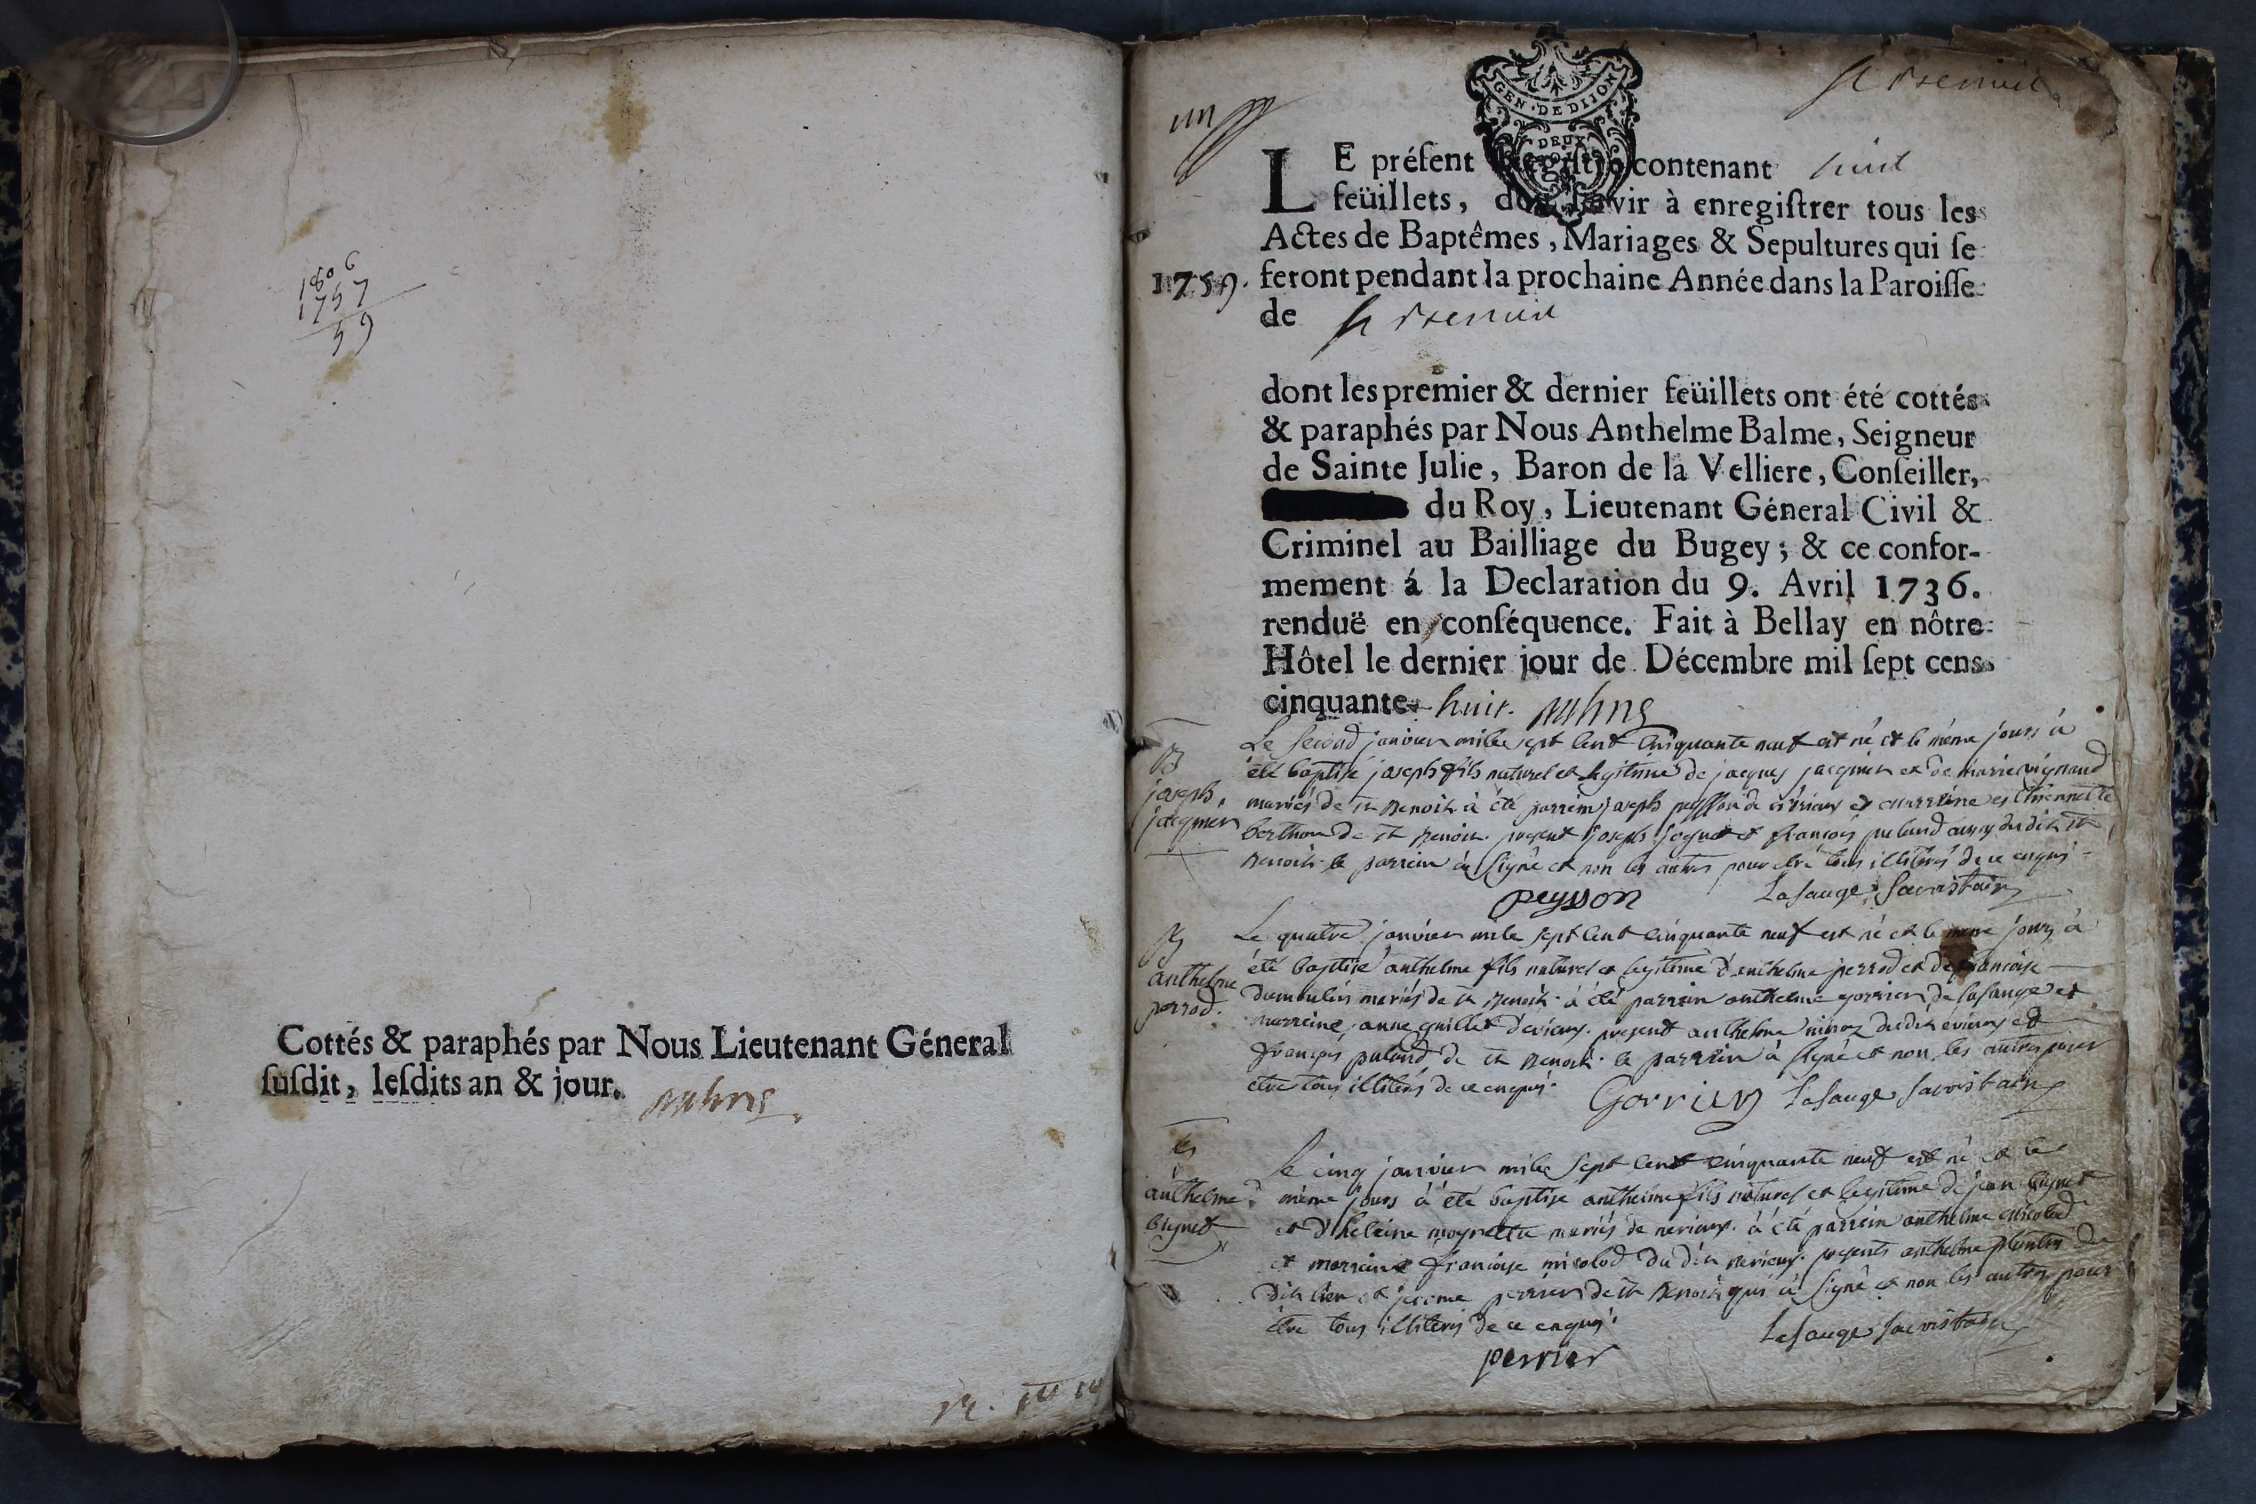 1806
1757
59
Cottés & paraphés par Nous Lieutenant Géneral
suſdit, leſdits an & jour.
un
GEN. DE DIJON
DEUX
St Benoit
LE préſent Regiſtre contenant huit
feüillets, doit ſervir à enregiſtrer tous les
Actes de Baptêmes, Mariages & Sepultures qui ſe
1759. feront pendant la prochaine Année dans la Paroiſſe
de St Benoit
dont les premier & dernier feüillets ont été cottés
& paraphés par Nous Anthelme Balme, Seigneur
de Sainte Julie, Baron de la Velliere, Conſeiller,
du Roy, Lieutenant Géneral Civil &
Criminel au Bailliage du Bugey; & ce confor-
mement á la Declaration du 9. Avril 1736.
renduë en conſéquence. Fait à Bellay en nôtre
Hôtel le dernier jour de Décembre mil ſept cens
cinquante huit.
joseph
jacquier
Le second janvier mille sept cent cinquante neuf est né et le même jours à
été baptisé joseph fils naturel et legitime de jacques jacquier et de marie vignaud
mariés de St Benoit à été parrein joseph peysson de évieux et marreine etiennette
berthon de St Benoit. present joseph et françois puland dudit St
Benoit le parrein à signé et non les autres pour etre tous illiterés de ce enquis
peysson Lasauge, sacristain
anthelme
perrod.
Le quatre janvier mille sept cent cinquante neuf est né et le meme jours à
été baptisé anthelme fils naturel et legitime d'anthelme perrod et de francoise
dumoulin mariés de St Benoit. à été parrein anthelme gorrier de lasauge et
marreine anne guillet d'evieux. present anthelme dudit évieux et
françois puland de St Benoit. le parrein à signé et non les autres pour
etre tous illiterés de ce enquis.
Gorrier Lasauge sacristain
anthelme
bignet
le cinq janvier mille sept cent cinquante neuf est né et le
même jours à été baptisé anthelme fils naturel et legitime de jean bignet
et d'helaine moyrette mariés de nerieux. à été parrein anthelme micolod
et marreine francoise micolod du dit nerieux. presents anthelme du
dit lieu et jerome perrier de St Benoit qui à signé et non les autres pour
être tous illiterés de ce enquis.
Lasauge sacristain
perrier